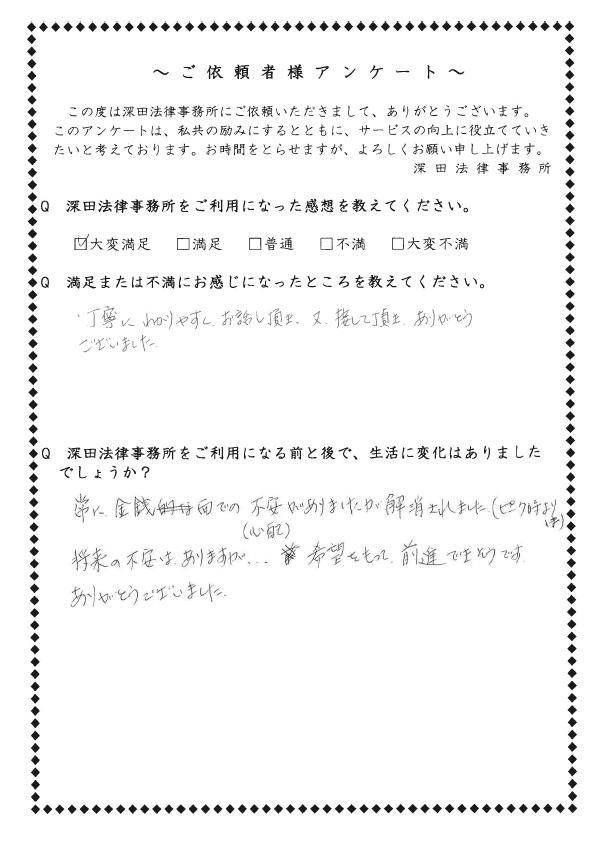 ～ご依頼者様アンケート～
この度は深田法律事務所にご依頼いただきまして、ありがとうございます。
このアンケートは、私共の励みにするとともに、サービスの向上に役立てていき
たいと考えております。お時間をとらせますが、よろしくお願い申し上げます。
深田法律事務所
Q 深田法律事務所をご利用になった感想を教えてください。
☑大変満足 □満足 □普通 □不満 □大変不満
Q 満足または不満にお感じになったところを教えてください。
・丁寧に わかりやすく お話し頂き、又、接して頂き、ありがとう
ございました。
Q 深田法律事務所をご利用になる前と後で、生活に変化はありました
でしょうか？
常に、金銭面での 不安がありましたが 解消されました。(ピーク時より
(心配)
将来の不安は ありますが... 希望をもって 前進できそうです。
ありがとうございました。